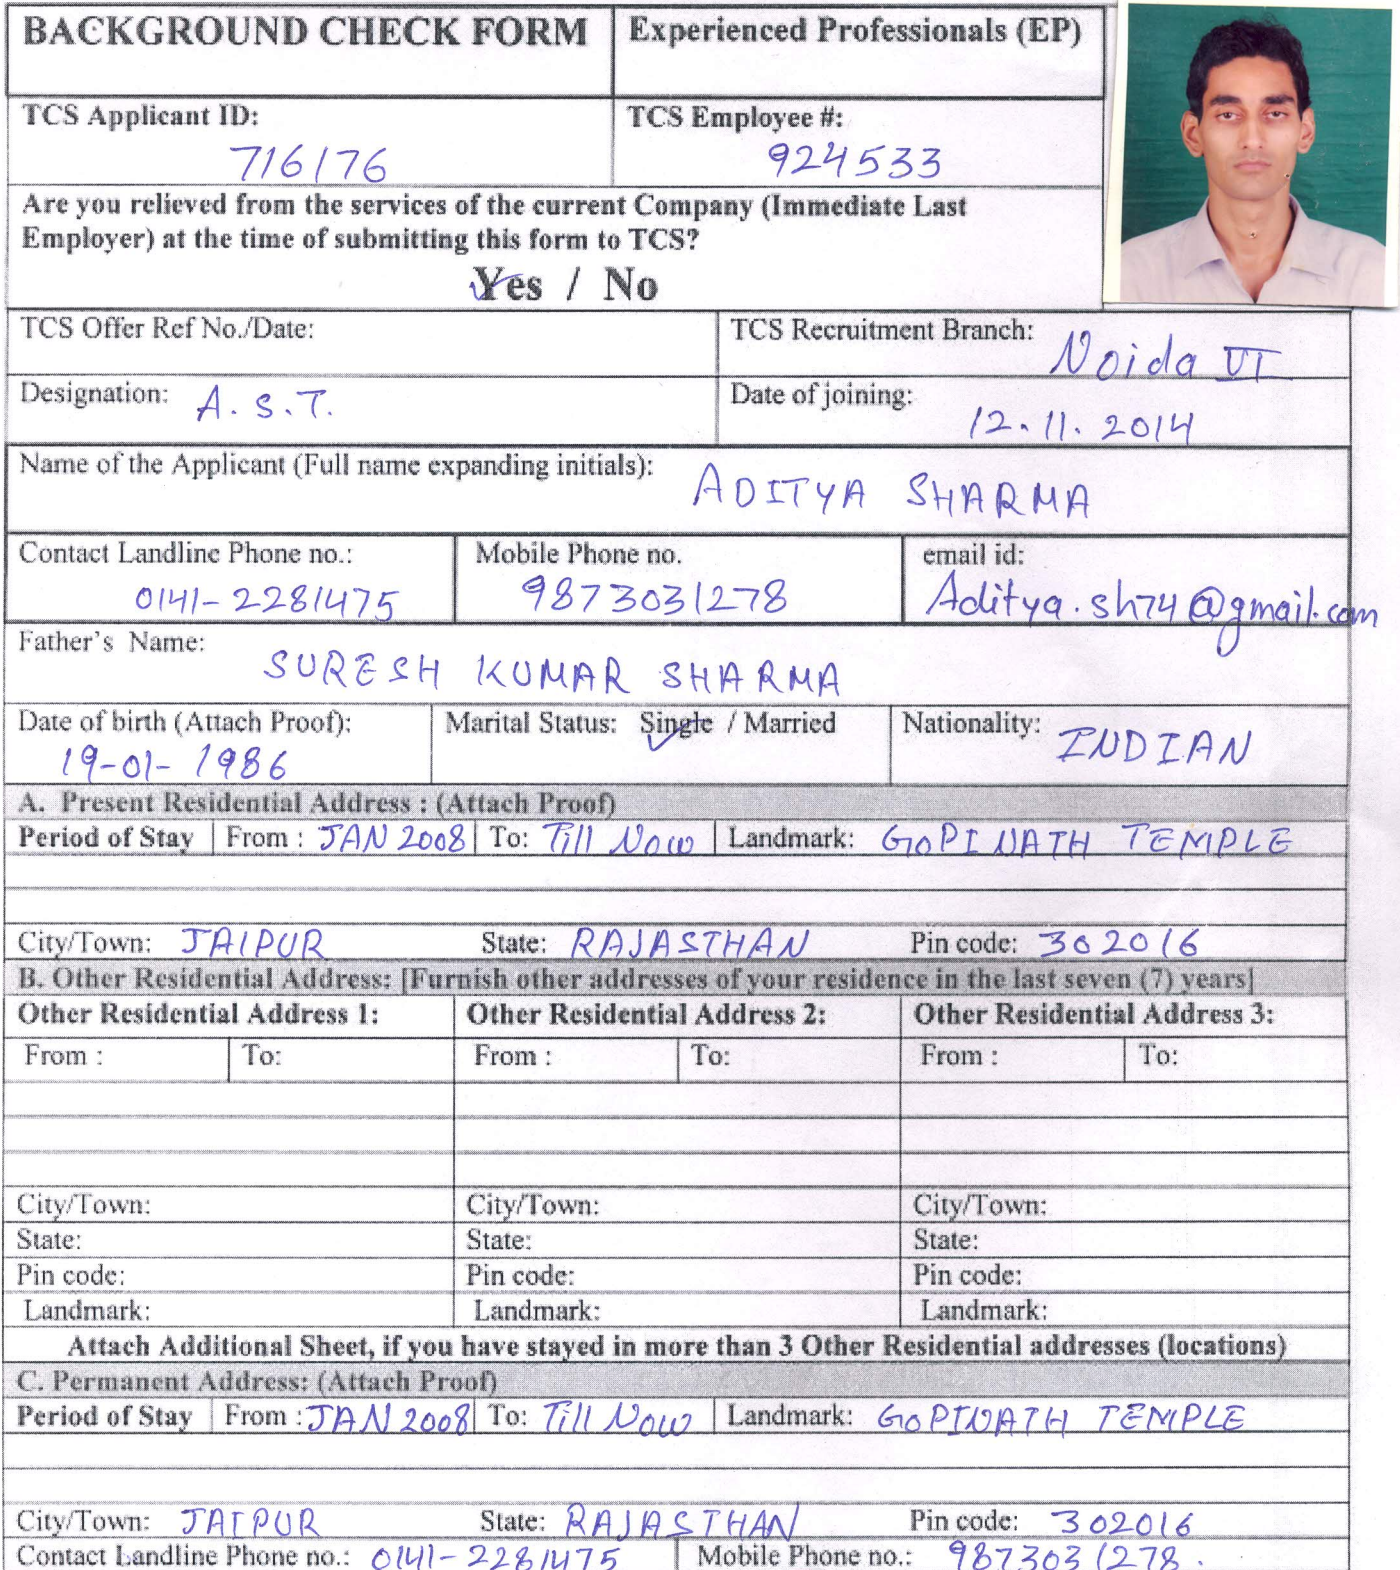 BACKGROUND CHECK FORM Experienced Professionals (EP)
TCS Applicant ID: TCS Employee #:
716176 924533
Are you relieved from the services of the current Company (Immediate Last
Employer) at the time of submitting this form to TCS?
Yes / No
TCS Offer Ref No./Date: TCS Recruitment Branch: Noida VI
Designation: A.S.T. Date of joining: 12.11.2014
Name of the Applicant (Full name expanding initials): ADITYA SHARMA
Contact Landline Phone no.: Mobile Phone no. email id:
0141-2281475 9873031278 Aditya.sh74@gmail.com
Father's Name: SURESH KUMAR SHARMA
Date of birth (Attach Proof): Marital Status: Single / Married Nationality: INDIAN
19-01-1986
A. Present Residential Address : (Attach Proof)
Period of Stay From : JAN 2008 To: Till Now Landmark: GOPINATH TEMPLE
City/Town: JAIPUR State: RAJASTHAN Pin code: 302016
B. Other Residential Address: [Furnish other addresses of your residence in the last seven (7) years]
Other Residential Address 1: Other Residential Address 2: Other Residential Address 3:
From : To: From : To: From : To:
City/Town: City/Town: City/Town:
State: State: State:
Pin code: Pin code: Pin code:
Landmark: Landmark: Landmark:
Attach Additional Sheet, if you have stayed in more than 3 Other Residential addresses (locations)
C. Permanent Address: (Attach Proof)
Period of Stay From : JAN 2008 To: Till Now Landmark: GOPINATH TEMPLE
City/Town: JAIPUR State: RAJASTHAN Pin code: 302016
Contact Landline Phone no.: 0141-2281475 Mobile Phone no.: 9873031278.